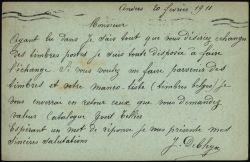 Anvers 20 février 1911
Monsieur
Ayant lu dans J. vais tout que vous désiriez échanger
des timbres postes je suis toute disposée à faire
l'échange. Si vous voulez me faire parvenir des
timbres et votre manco-liste (timbres belges) je
vous enverrai en retour ceux que vous demandez
valeur Catalogue Yvert Tellier
Espérant un mot de réponse je vous présente mes
sincères salutations
J.